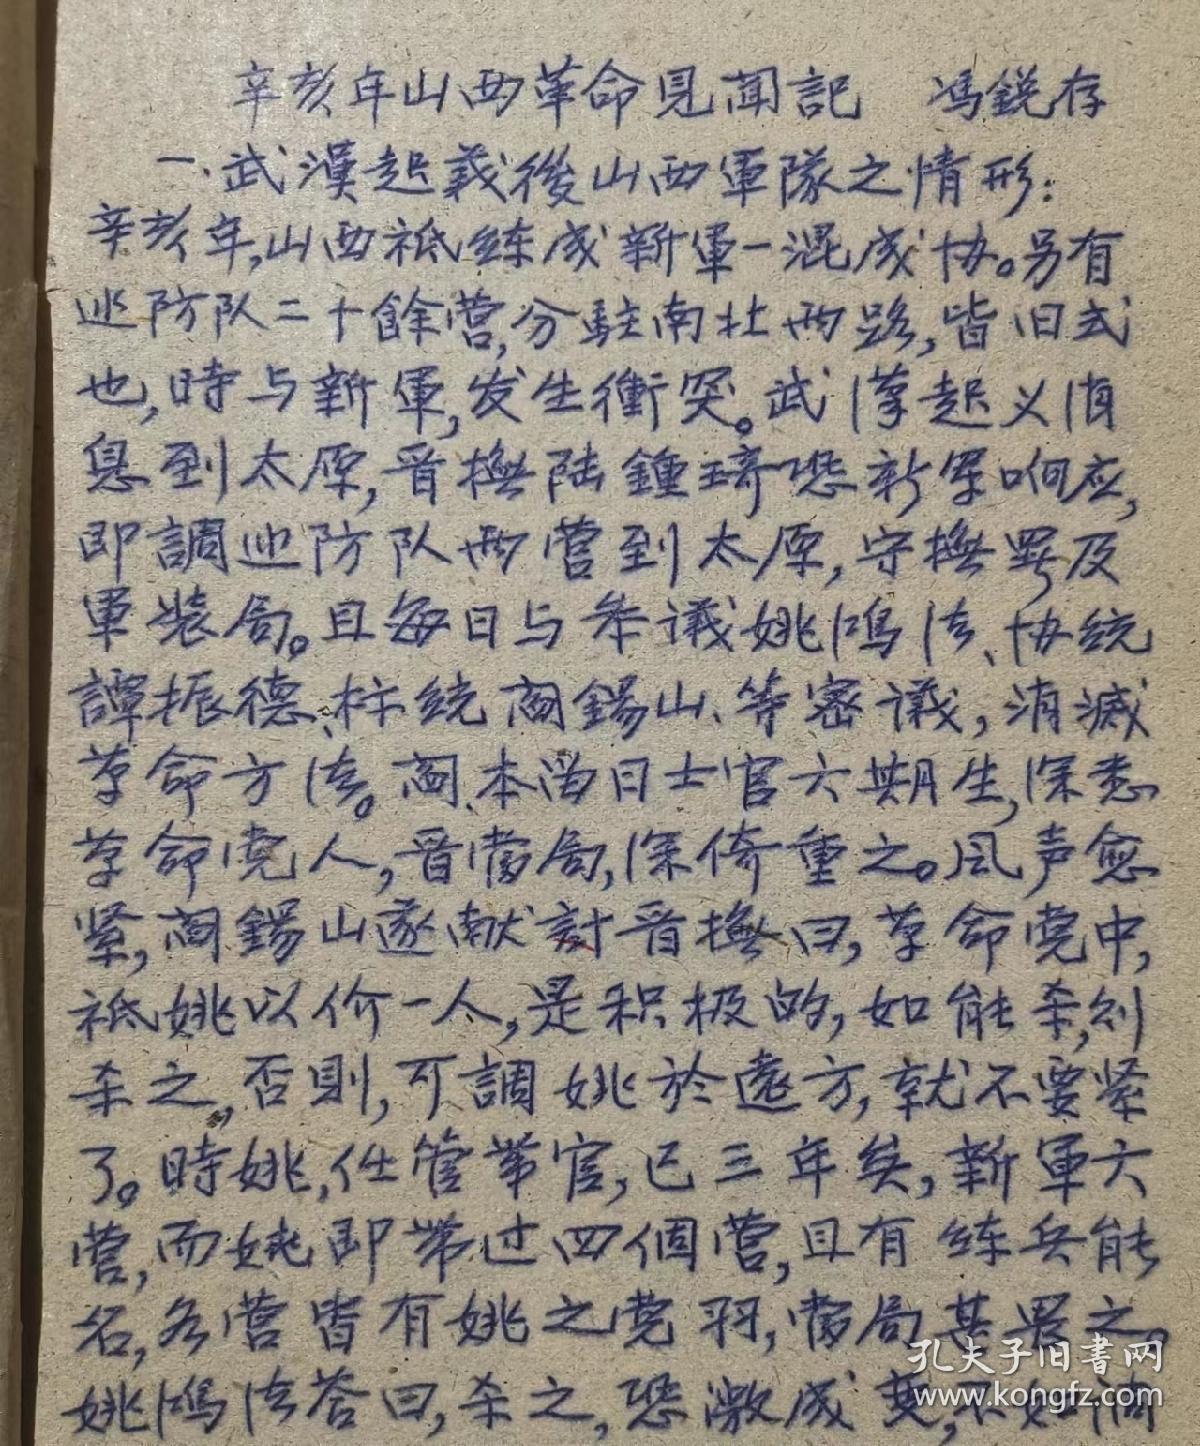 辛亥年山西革命見聞記 馮銳存
一.武漢起義後山西軍隊之情形:
辛亥年,山西祇練成新軍一混成协。另有
巡防队二十餘營,分駐南北两路,皆旧式
也,時与新軍,发生衝突。武漢起义消
息到太原,晋撫陆鍾琦恐新军响应,
即調巡防队两营到太原,守撫署及
軍裝局。且每日与参議姚鴻法、协統
譚振德、标统阎錫山、等密議,消滅
革命方法。阎.本留日士官六期生,深悉
革命党人,晋當局,深倚重之。风声愈
紧,阎錫山遂献計晋撫曰,革命党中,
祇姚以价一人,是积极的,如能杀,則
杀之,否則,可調姚於遠方,就不要紧
了。時姚,任管带官,已三年矣,新軍六
营,而姚即带过四個营,且有練兵能
名,各营皆有姚之党羽,當局甚畏之。
姚鴻法答曰,杀之,恐激成变,不如調
孔夫子旧書网
www.kongfz.com